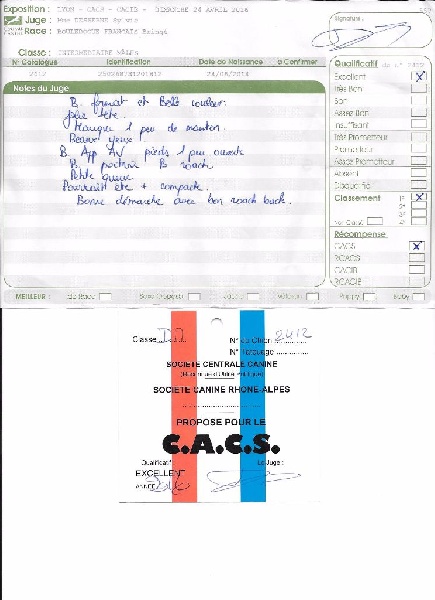 Exposition : LYON - CACS - CACIB - DIMANCHE 24 AVRIL 2016
Juge : Mme DESSERNE Sylvie
Race : BOULEDOGUE FRANÇAIS Bringé
Signature :
Classe : INTERMEDIAIRE MÂLEs
N° Catalogue Identification Date de Naissance a Confirmer
2412 24/08/2014
Notes du Juge
B. format et Belle couleur.
Jolie tête.
Manque 1 peu de menton.
Beaux yeux.
B. App AV pieds 1 peu ouverts
B. poitrine B. roach
Petite queue
Pourrait être + compacte.
Bonne démarche avec bon roach back.
Qualificatif
Excellent X
Très Bon
Bon
Assez Bon
Insuffisant
Très Prometteur
Prometteur
Assez Prometteur
Absent
Disqualifié
Classement 1er X
2e
3e
Non Classé 4e
Récompense
CACS X
RCACS
CACIB
RCACIB
MEILLEUR : de Race Sexe Opposé Jeune Vétéran Puppy Baby
Classe
N° du Chien 2412
N° Tatouage
SOCIETE CENTRALE CANINE
(Reconnue d'Utilité Publique)
SOCIETE CANINE RHONE-ALPES
PROPOSE POUR LE
C.A.C.S.
Qualificatif : Le Juge :
EXCELLENT